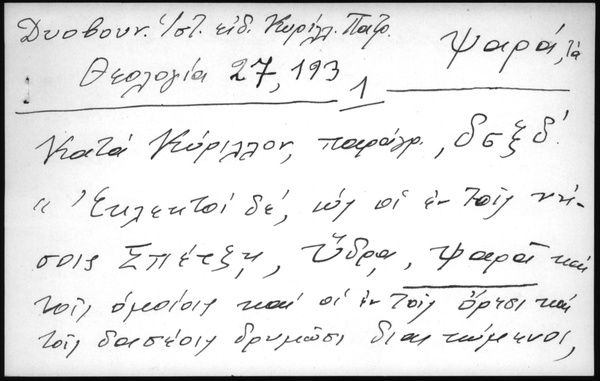 Δυοβουν. Ἱστ. εἰδ. Κυρίλλ. Πατρ.
Ψαρά, τά
Θεολογία 27, 193
1
Κατά Κύριλλον, παράγρ., δσξδ´.
« Ἐκλεκτοί δέ, ὡς οἱ ἐν τοῖς νή-
σοις Σπέτζῃ, Ὕδρᾳ, Ψαροῖ καί
τοῖς ὁμοίοις καί οἱ ἐν τοῖς ὄρεσι καί
τοῖς δασέσις δρυμῶσι διαιτώμενοι,